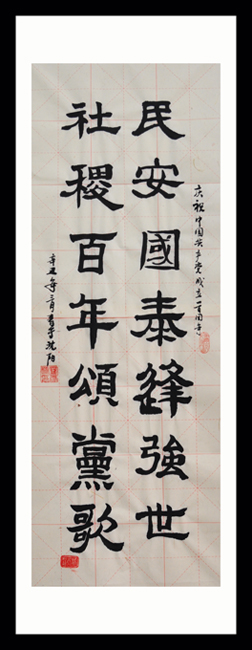 庆祝中国共产党成立一百周年
民安國泰逢強世
社稷百年頌黨歌
辛丑年